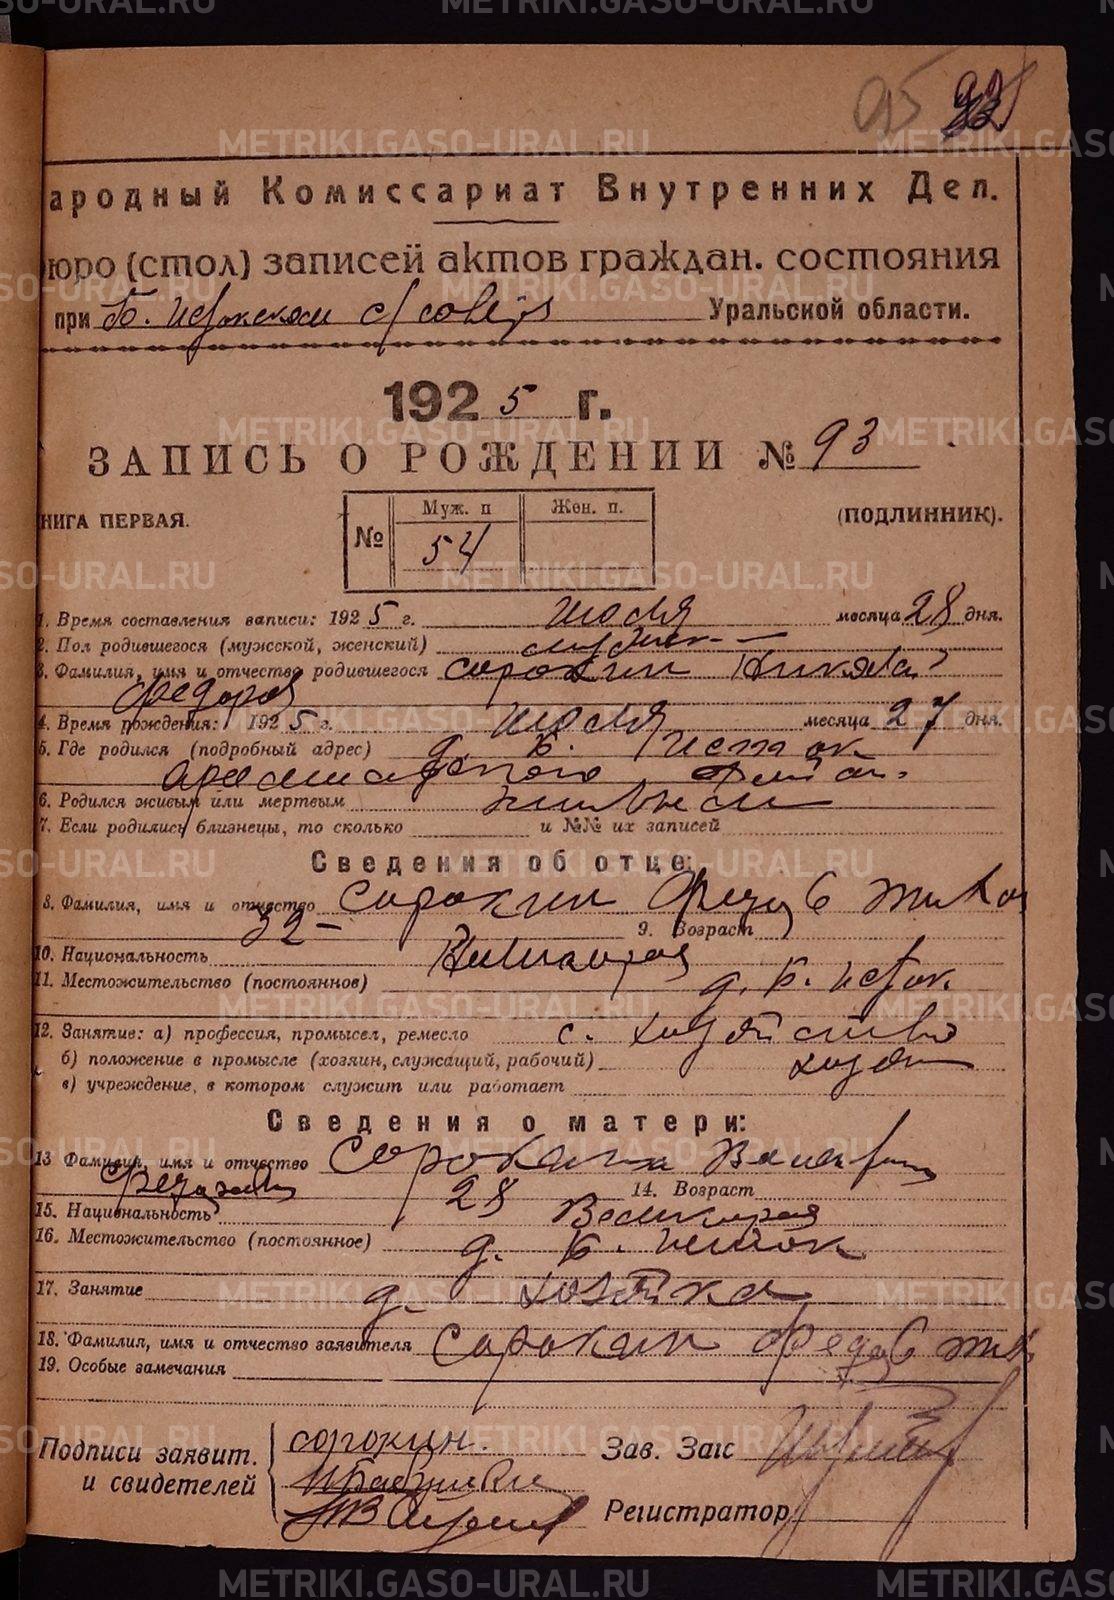 95 93
ародный Комиссариат Внутренних Дел.
юро (стол) записей актов граждан. состояния
при Б. Истокском с/совете Уральской области.
1925 г.
ЗАПИСЬ О РОЖДЕНИИ № 93
НИГА ПЕРВАЯ. (ПОДЛИННИК).
Муж. п Жен. п.
№ 54
1. Время составления записи: 1925 г. Июля месяца 28 дня.
2. Пол родившегося (мужской, женский) мужск.
3. Фамилия, имя и отчество родившегося Сорокин Никола
Федоров
4. Время рождения: 1925 г. Июля месяца 27 дня.
5. Где родился (подробный адрес) д. Б. Исток
Арамильского
6. Родился живым или мертвым живым
7. Если родились близнецы, то сколько и №№ их записей
Сведения об отце:
8. Фамилия, имя и отчество Сорокин Федор
32 - 9. Возраст
10. Национальность
11. Местожительство (постоянное) д. Б. Исток
12. Занятие: а) профессия, промысел, ремесло с. хозяйство
б) положение в промысле (хозяин, служащий, рабочий) хозяин
в) учреждение, в котором служит или работает
Сведения о матери:
13 Фамилия, имя и отчество Сорокина
14. Возраст 28
15. Национальность
16. Местожительство (постоянное) д. Б. Исток
17. Занятие д. хозяйка
18. Фамилия, имя и отчество заявителя Сорокин Федор
19. Особые замечания
Подписи заявит. и свидетелей
сорокин.
Зав. Загс
Регистратор
METRIKI.GASO-URAL.RU